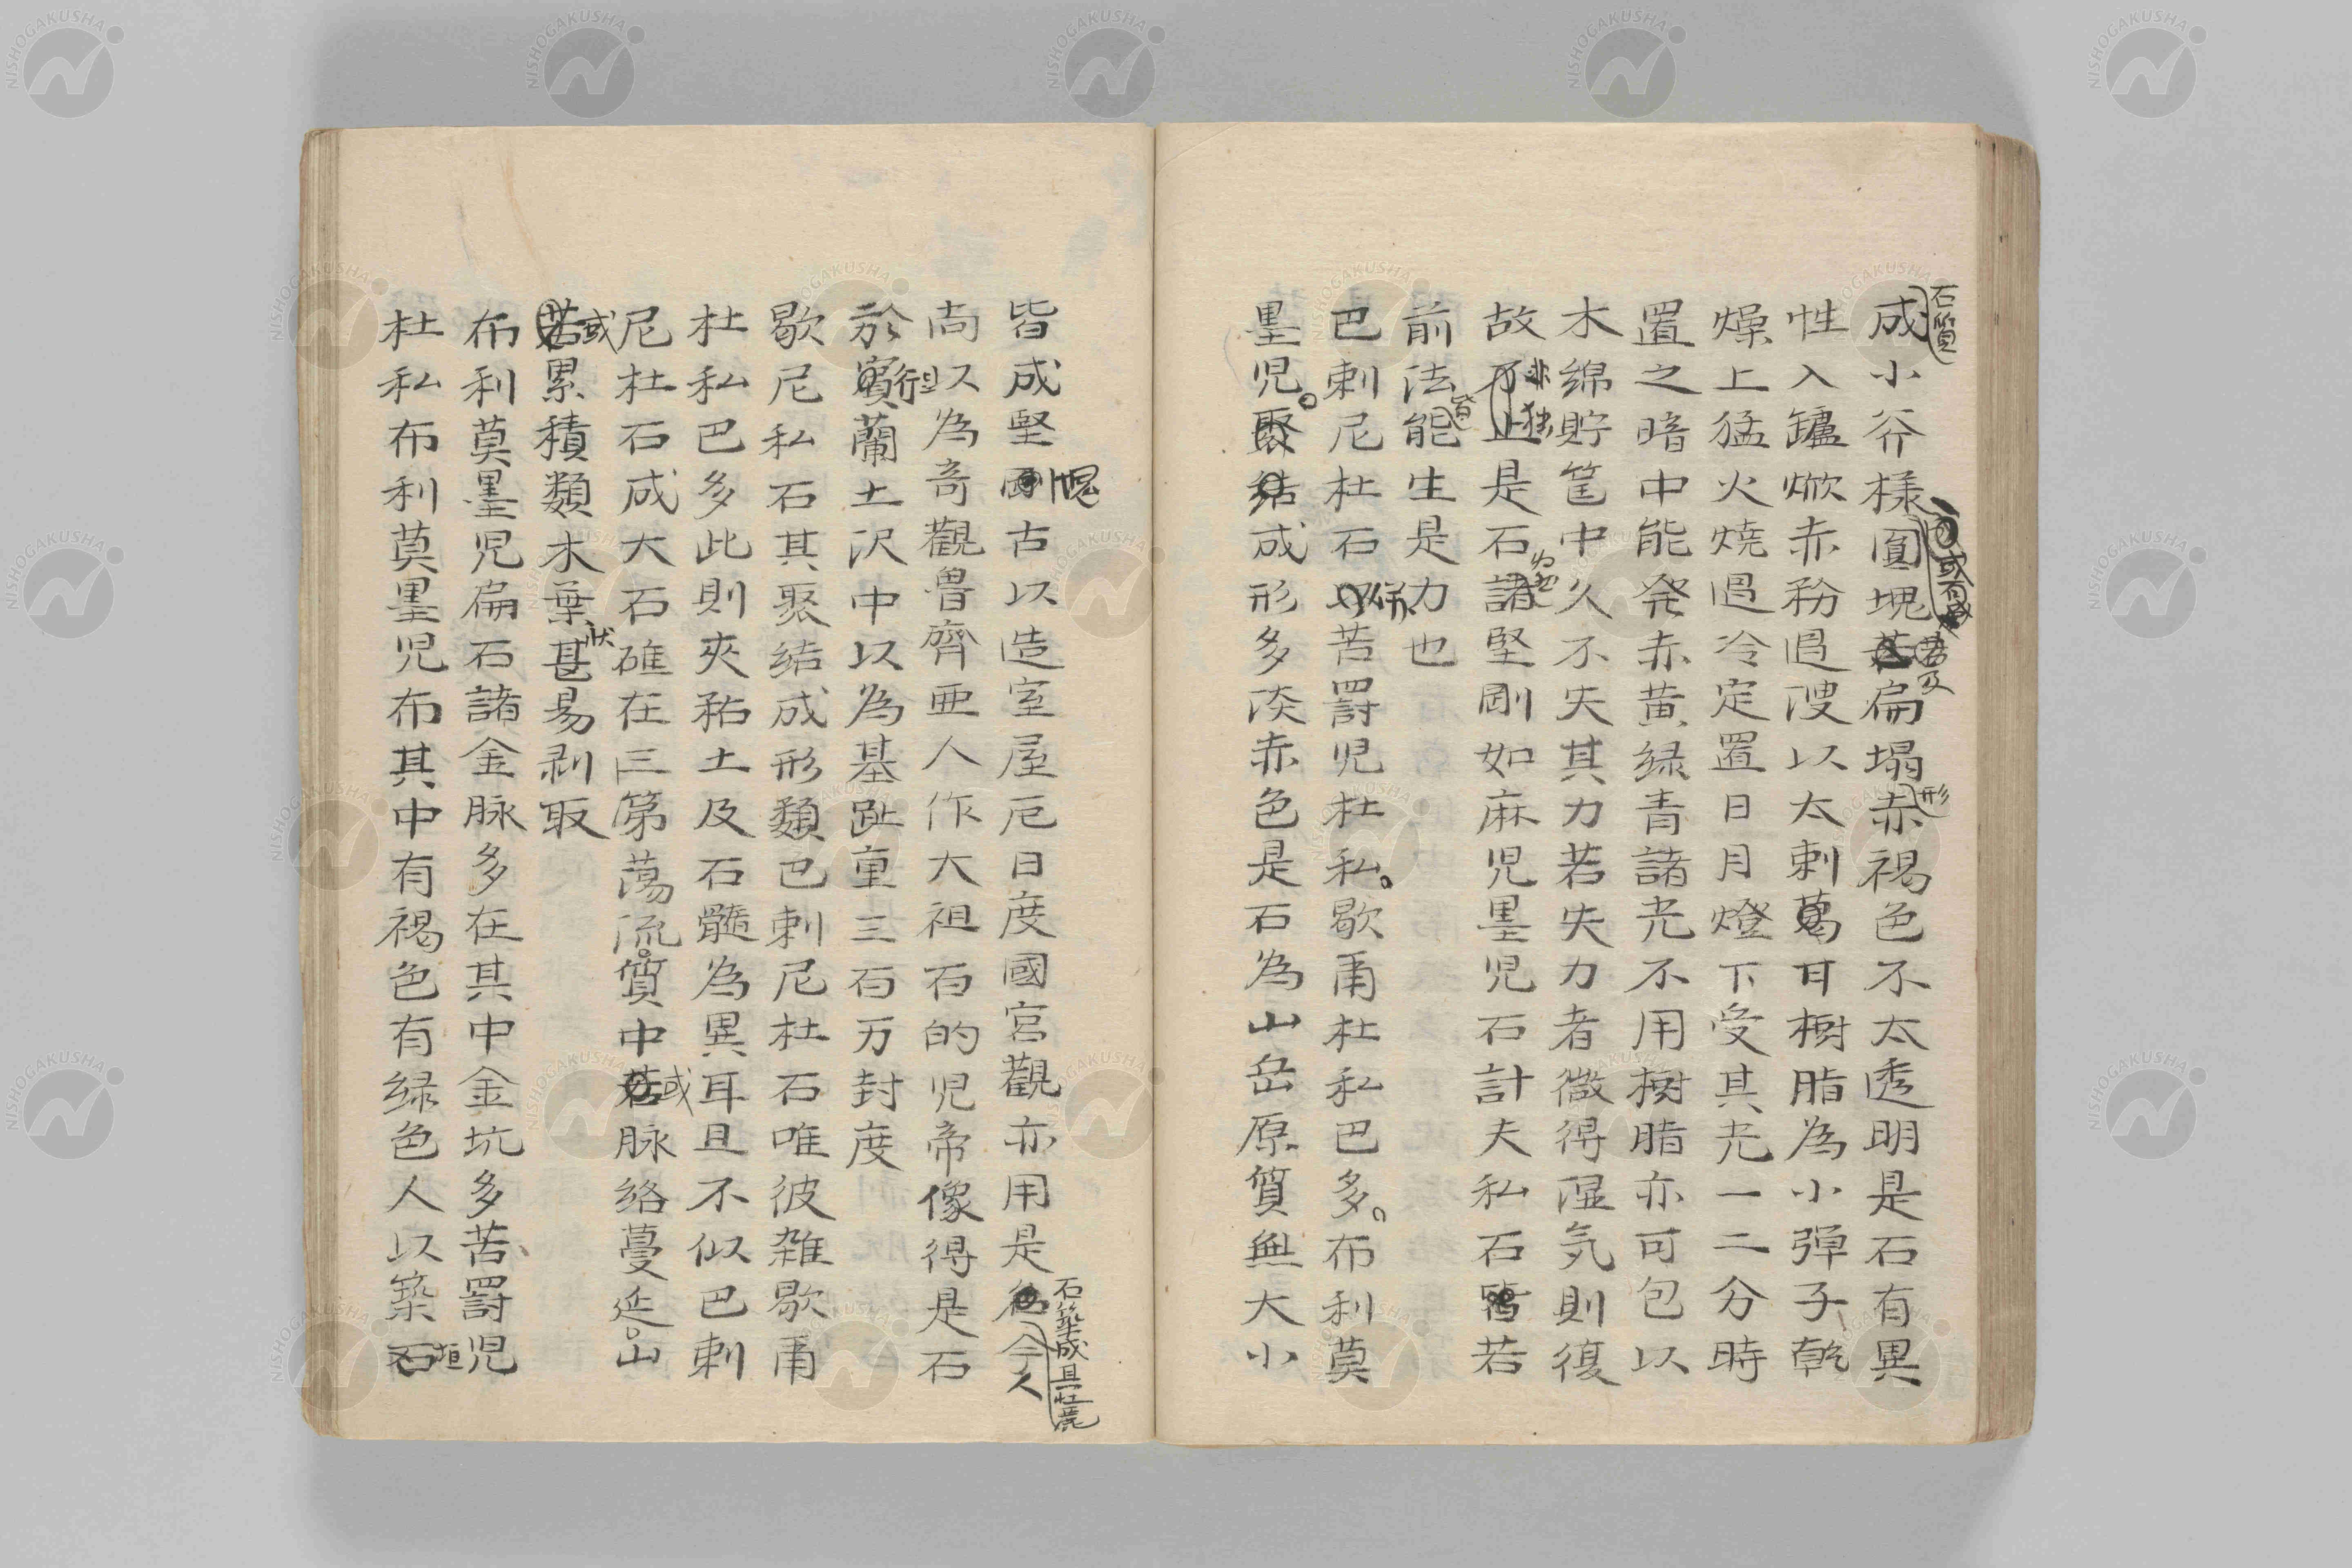 石質
成小斧様圓塊扁塌赤褐色不太透明是石有異
或石成
若及
形
性入鑪焮赤矜過溲以太刺葛耳樹脂為小弾子乾
燥上猛火焼過冷定置日月燈下受其光一二分時
置之暗中能発赤黄緑青諸光不用樹脂亦可包以
木綿貯筐中久不失其力若失力者微得湿気則復
故不止是石諸堅剛如麻児墨児石計夫私石皆若
非独
前法能生是力也
皆
巴刺尼杜石以苦罸児杜私歇甭杜私巴多布利莫
併
墨児聚結成形多淡赤色是石為山岳原質無大小
皆成堅剛古以造室屋厄日度國宮觀亦用是後今人
石築成且壮麗
尚以為奇觀魯齊亜人作大祖石的児帝像得是石
於賓蘭土沢中以為基趾重三百万封度
歇尼私石其聚結成形類巴刺尼杜石唯彼雑歇甭
杜私巴多此則夾秥土及石髓為異耳且不似巴刺
尼杜石成大石確在三第蕩流質中若脉絡蔓延山
或
若累積類木葉甚易剥取
或
状
布利莫墨児扁石諸金脉多在其中金坑多苦罸児
杜私布利莫墨児布其中有褐色有緑色人以築石
垣
NISHOGAKUSHA